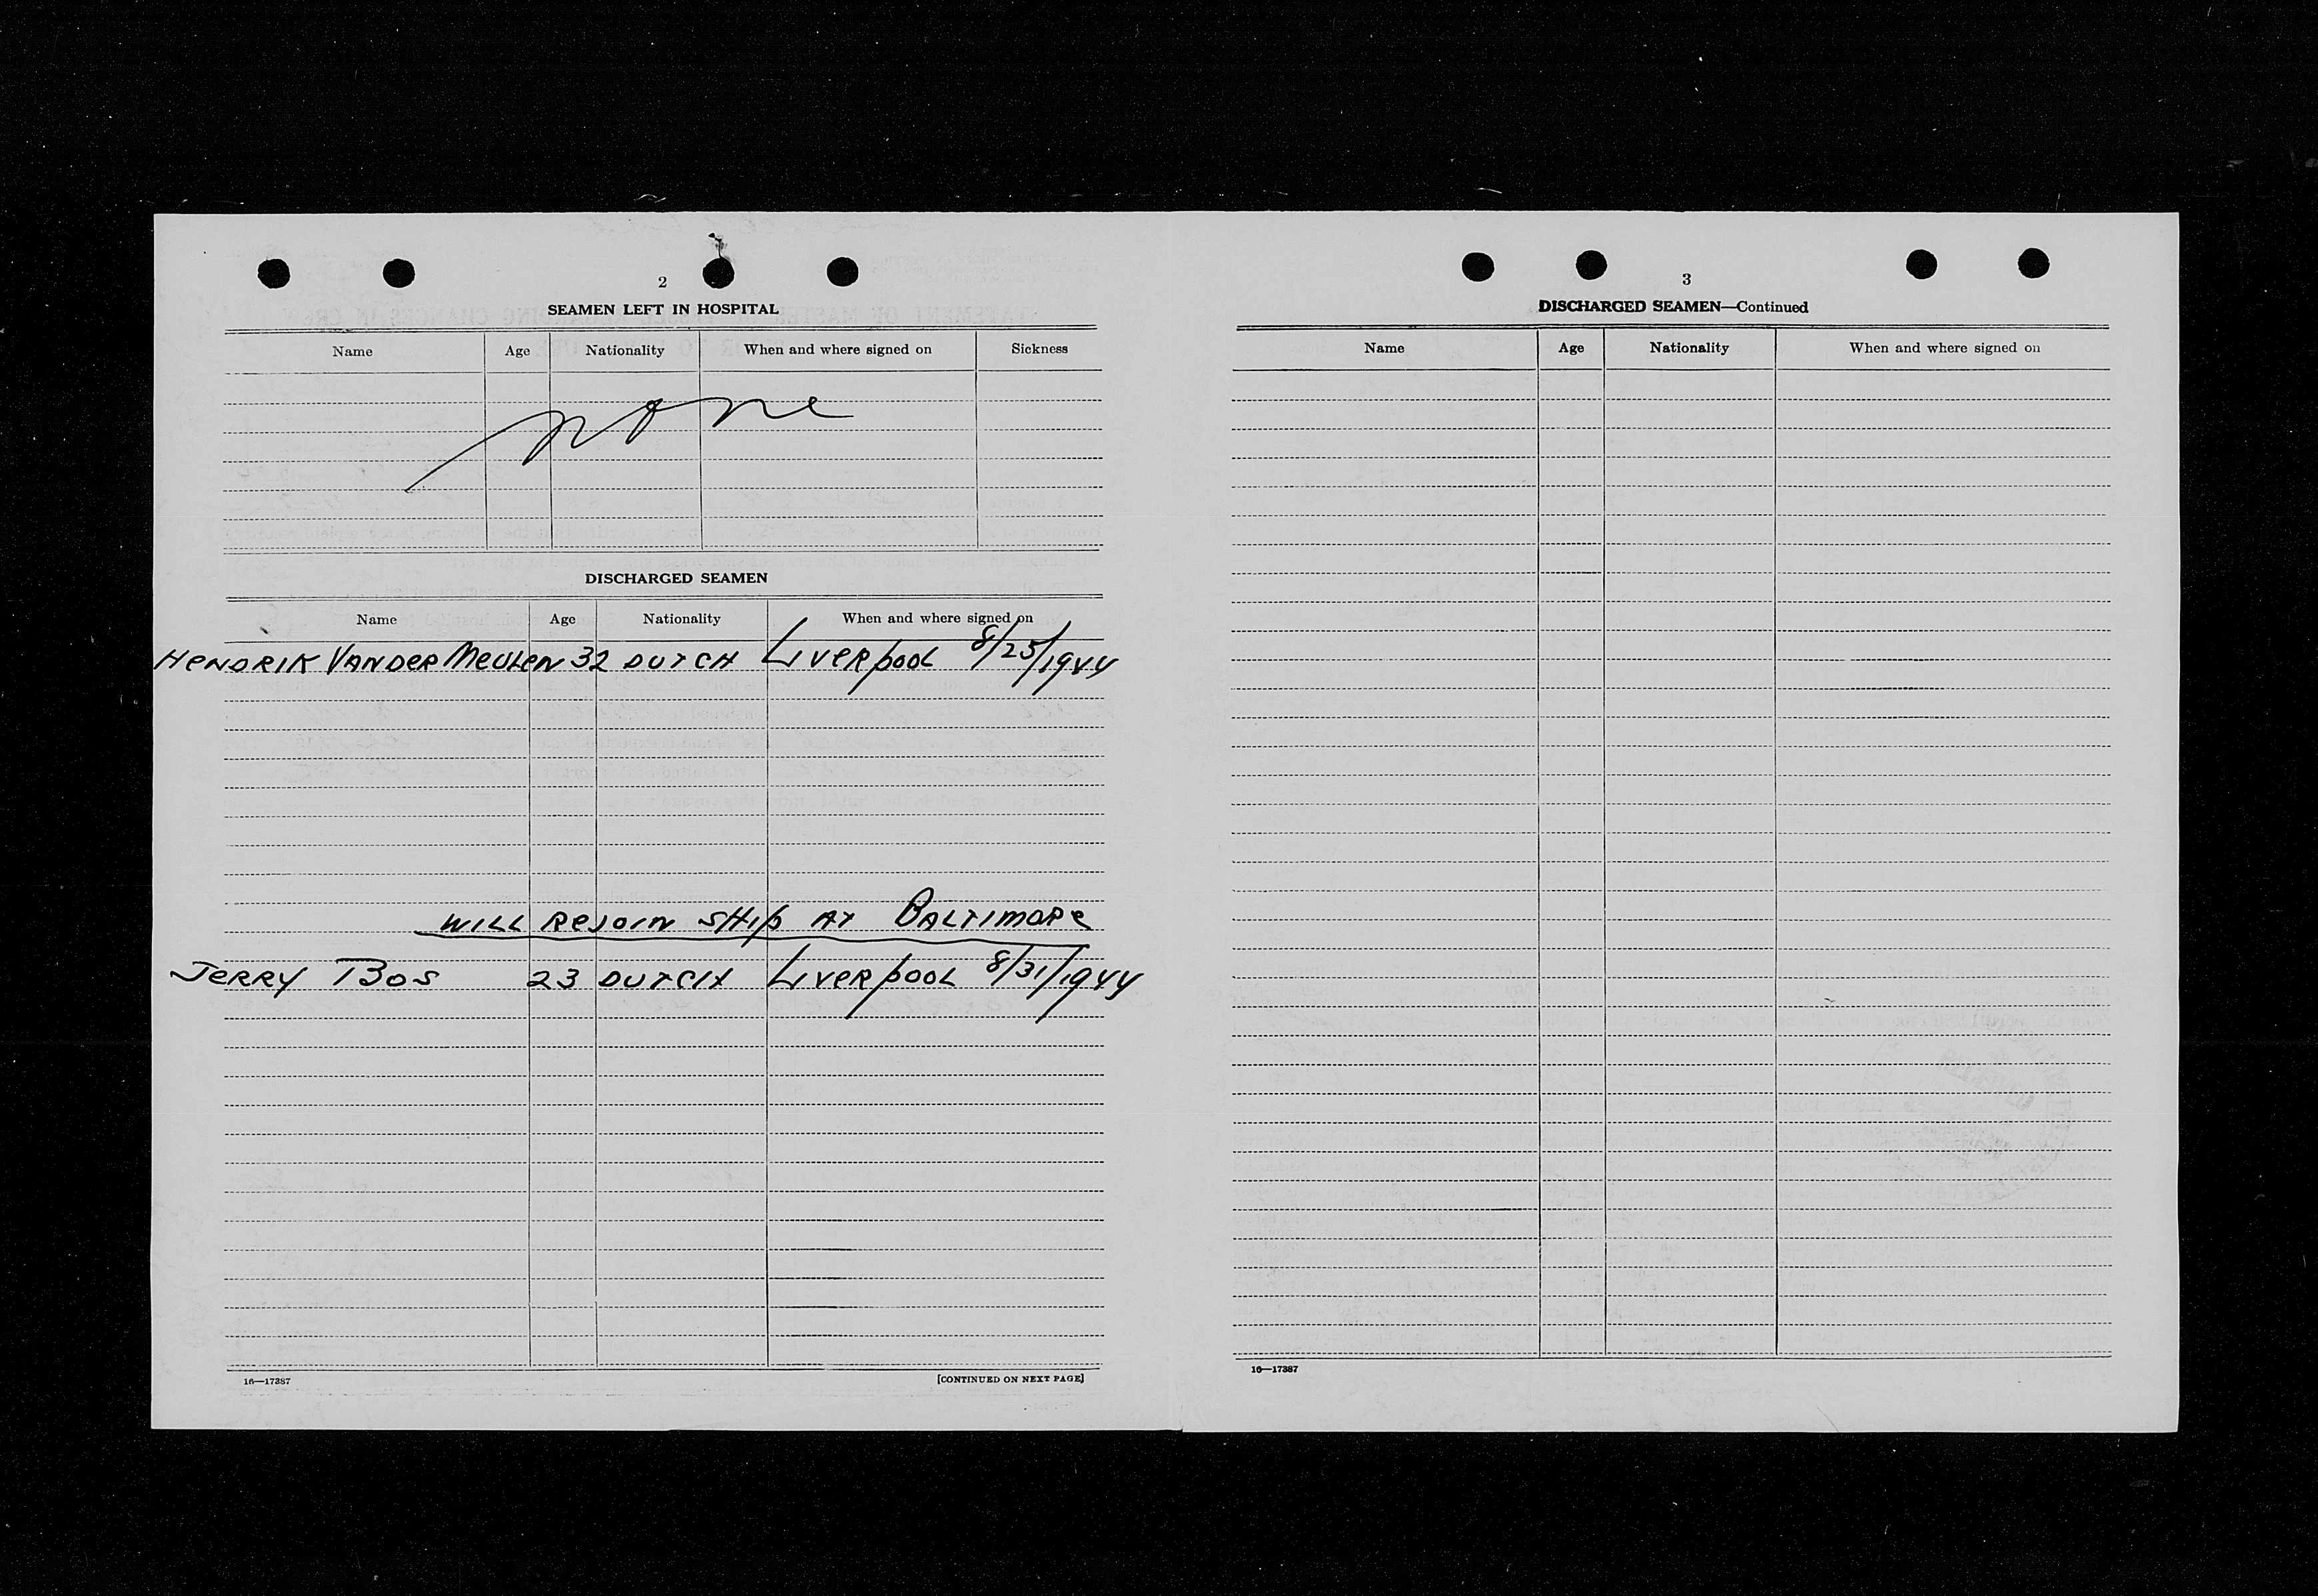 2
SEAMEN LEFT IN HOSPITAL
Name Age Nationality When and where signed on Sickness
none
DISCHARGED SEAMEN
Name Age Nationality When and where signed on
HENDRIK VANDER MEULEN 32 DUTCH LIVERPOOL 8/25/1944
WILL REJOIN SHIP AT BALTIMORE
JERRY BOS 23 DUTCH LIVERPOOL 8/31/1944
16—17387 [CONTINUED ON NEXT PAGE]
3
DISCHARGED SEAMEN—Continued
Name Age Nationality When and where signed on
16—17387